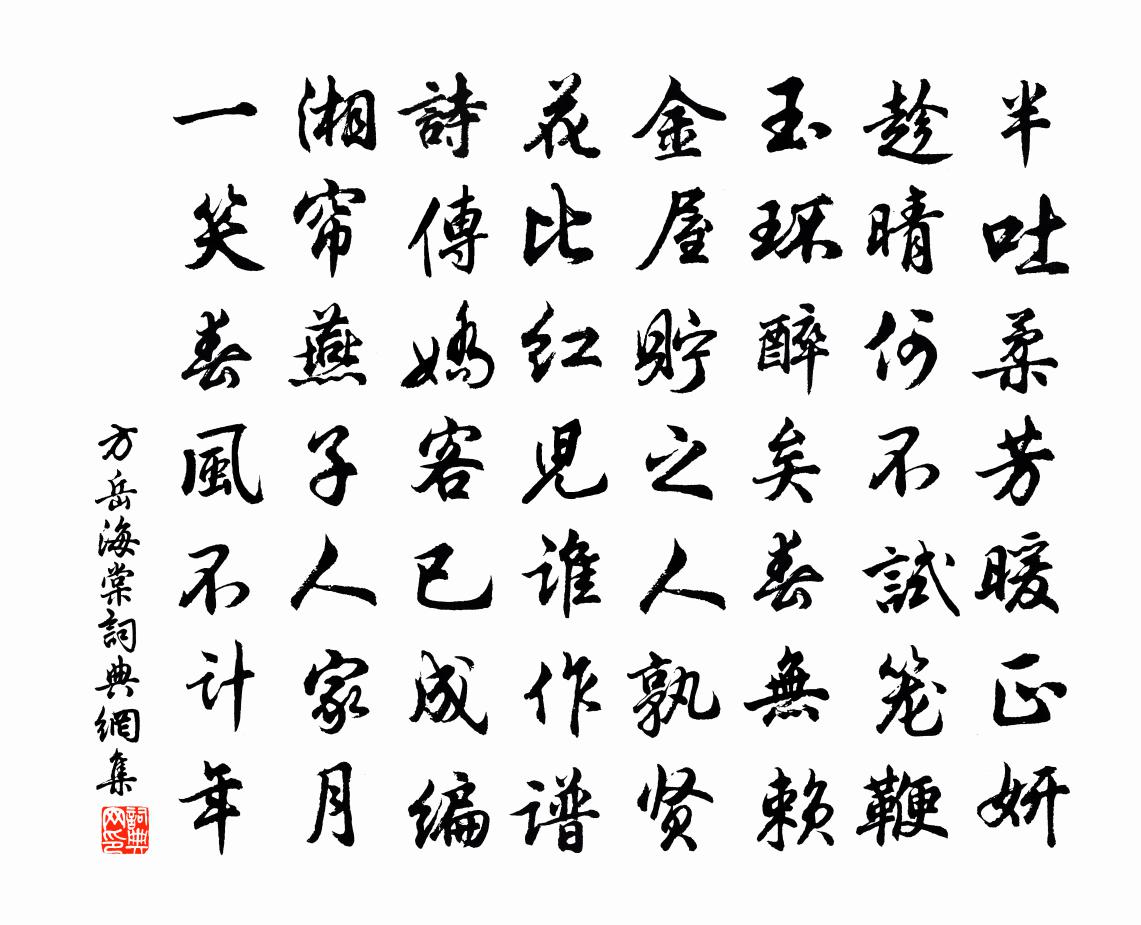 半吐柔芳暖正妍
趁晴何不試笼鞭
玉環醉矣春無赖
金屋貯之人孰贤
花比红児谁作谱
詩傳嬌客已成编
湘帘燕子人家月
一笑春風不计年
方岳海棠詞典網集
詞典網印